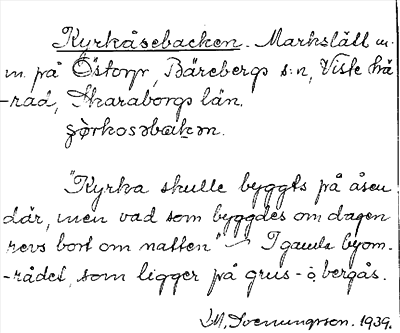 Kyrkåsebacken. Markslätt m.
m. på Östorp, Bärebergs s:n, Viste hä
-rad, Skaraborgs län.
"Kyrka skulle byggts på åsen
där, men vad som byggdes om dagen
revs bort om natten" – I gamla byom-
-rådet, som ligger på grus- o. bergås.
M. Svenungsson. 1939.